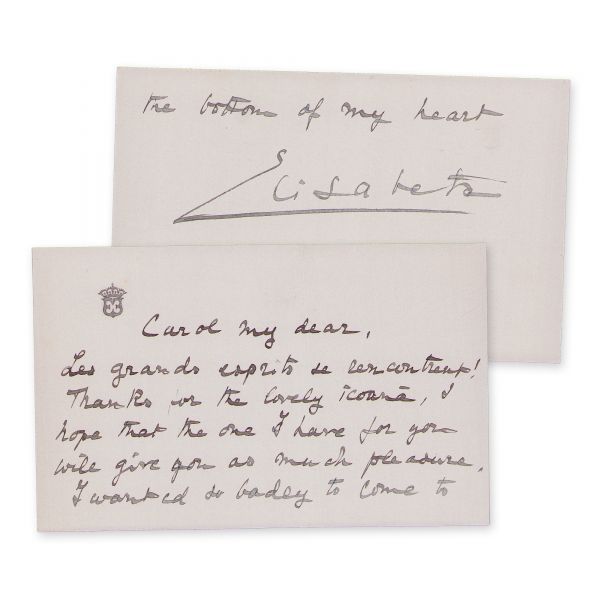 Carol my dear,
Les grands esprits se rencontrent!
Thanks for the lovely icoană, I
hope that the one I have for you
will give you as much pleasure.
I wanted so badly to come to
the bottom of my heart
Elisabeta